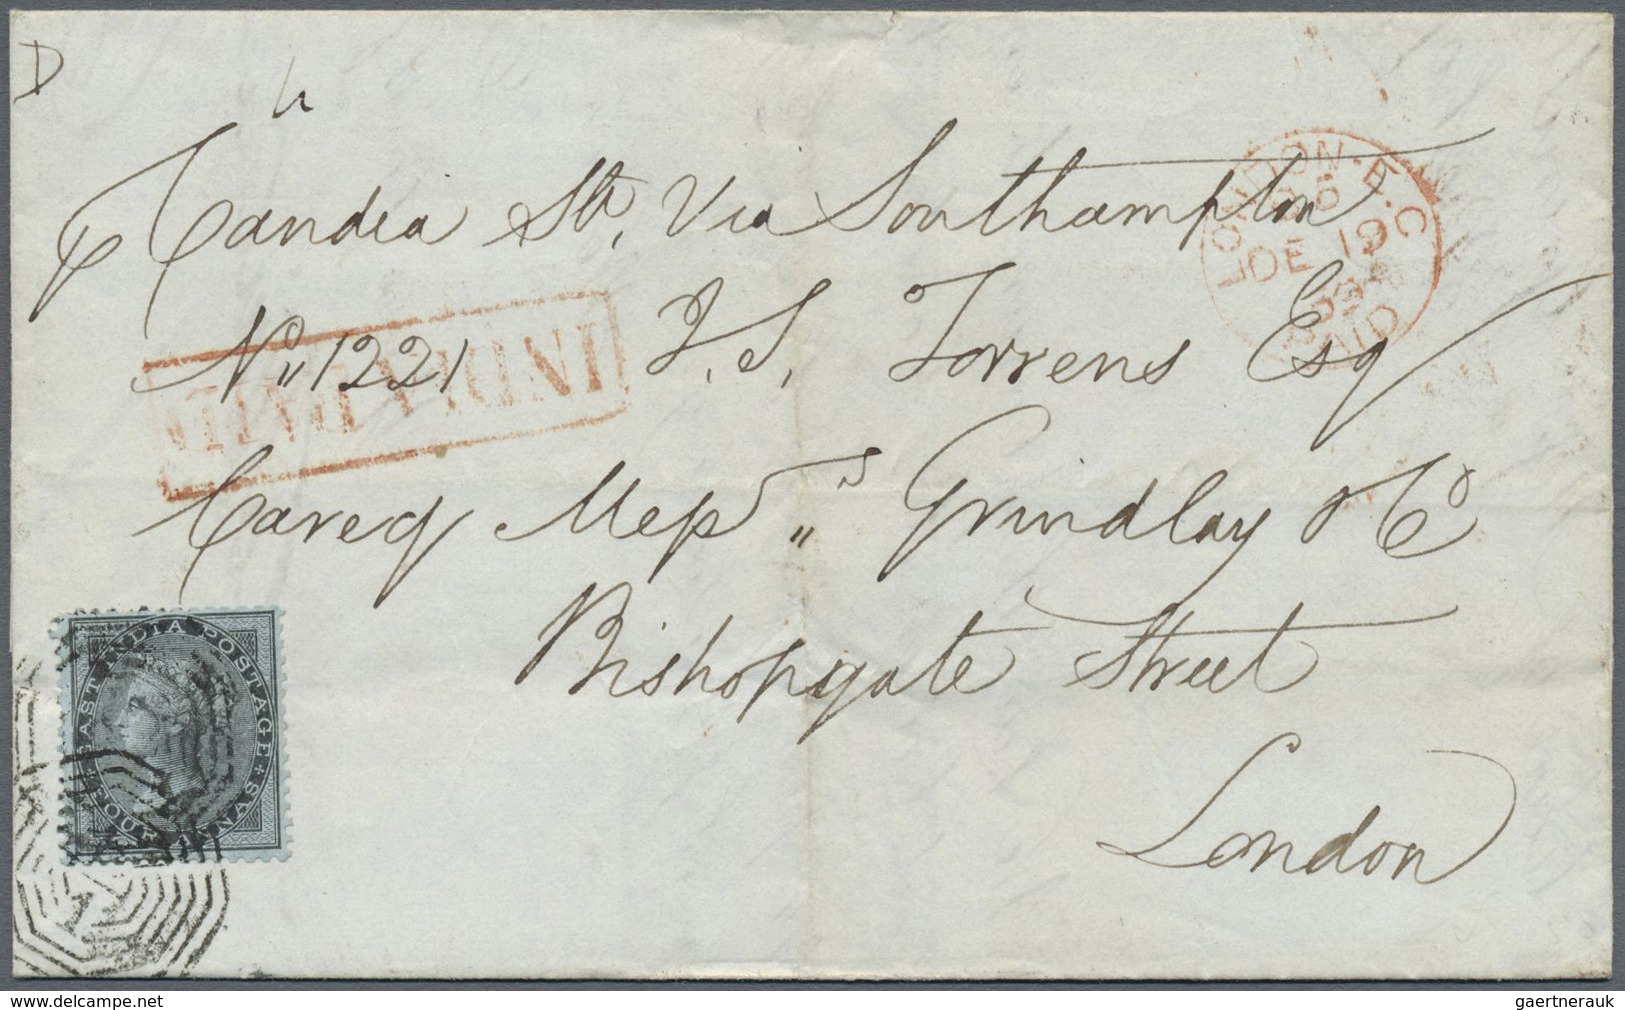 D
4
p Candia Str, Via Southampton
LONDON-E.C
DE 19
59
PAID
No,, 1221 J. S. Torrens Esq
INDIA PAID
Care of Mess,,rs Grindlay & Co
Bishopgate Street
London
EAST INDIA POSTAGE
FOUR ANNAS
1
delcampe.net
gaertnerauk